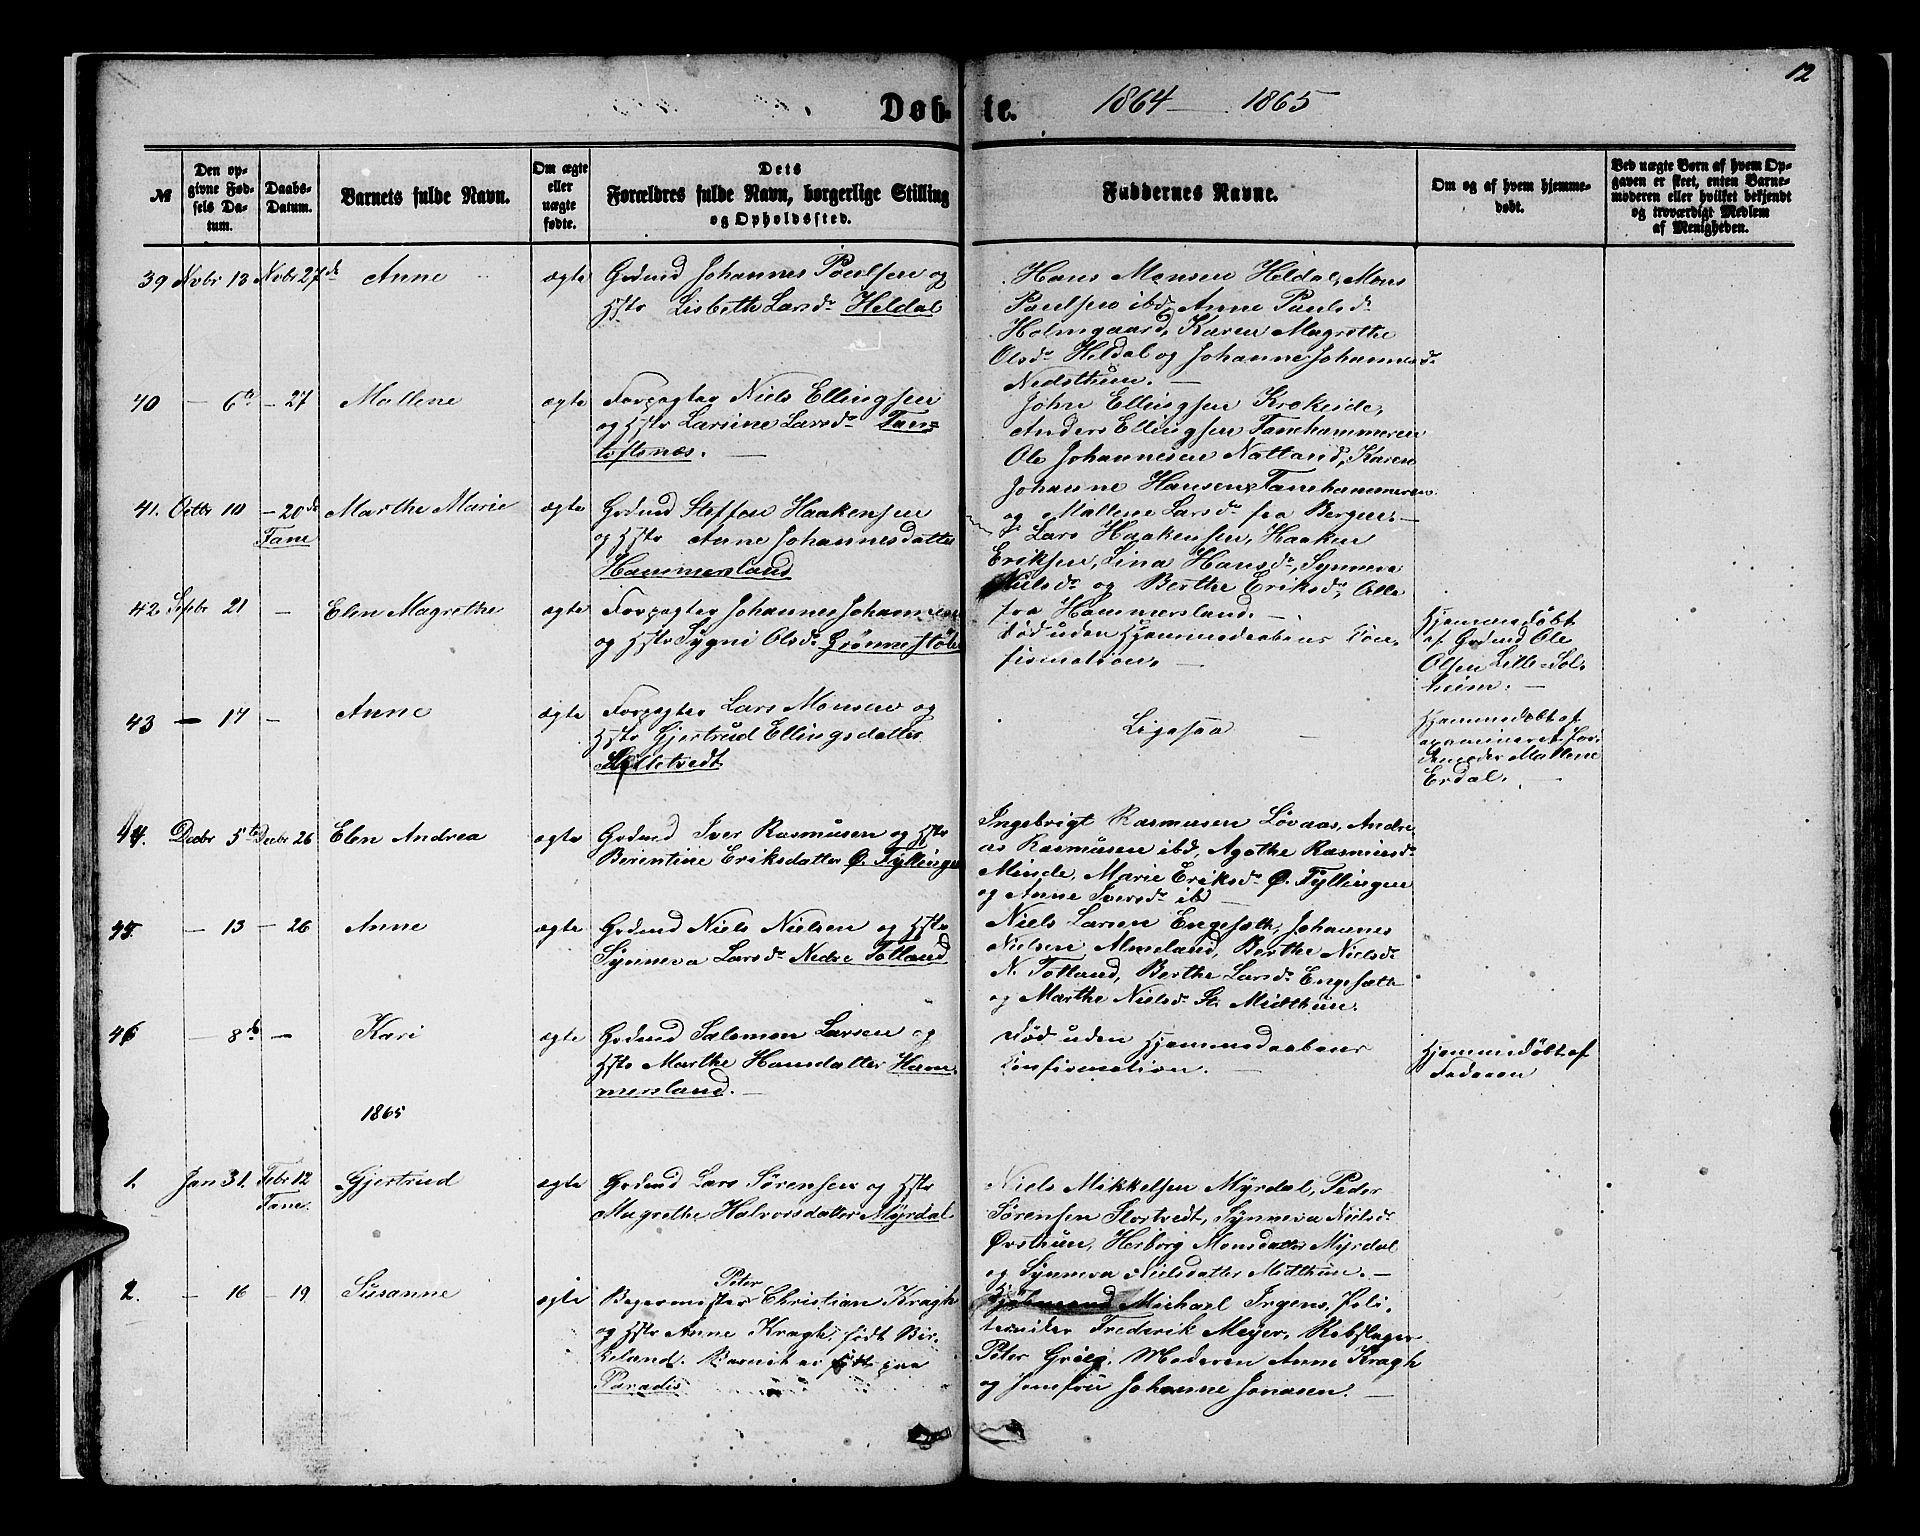 12
Døb- te. 1864 — 1865
№
Den op-
givne Fød-
sels Da-
tum.
Daabs-
Datum.
Barnets fulde Navn.
Om ægte
eller
uægte
fødte.
Dets
Forældres fulde Navn, borgerlige Stilling
og Opholdssted.
Faddernes Navne.
Om og af hvem hjemme-
døbt.
Ved uægte Børn af hvem Op-
gaven er skeet, enten Barne-
moderen eller hvilket bekjendt
og troværdigt Medlem
af Menigheden.
39 Nvbr 13 Nvbr 27de Anne ægte Grdmd Johannes Poulsen og
Hstr Lisbeth Larsdr Heldal
Hans Monsen Heldal, Mons
Paulsen ibd, Anne Paulsdr
Holmgaard, Karen Magrethe
Olsdr Heldal og Johanne Johannesdr
Nedsthun. —
40 — 6te — 27 Mallene ægte Forpagter Niels Ellingsen
og Hstr Larine Larsdr Fan-
toftsnæs. —
John Ellingsen Krokeide,
Anders Ellingsen Fanehammeren
Ole Johannesen Natland, Karen
Johanne Hansen Fanehammeren
og Mallene Larsdr fra Bergen. —
41. Octbr 10 — 20de Fane Marthe Marie ægte Grdmd Steffen Haakensen
og Hstr Anne Johannesdatter
Hammersland
Lars Haakensen, Haaken
Eriksen, Lina Hansdr, Synneva
Nielsdr og Berthe Eriksdr, Alle
fra Hammersland. —
42 Septbr 21 — Elen Magrethe ægte Forpagter Johannes Johannesen
og Hstr Sygni Olsdr Grønnestøle
Død uden Hjemmedaabens Con-
firmation. —
Hjemmedøbt
af Grdmd Ole
Olsen Lille-Sol-
heim. —
43 — 17 — Anne ægte Forpagter Lars Monsen og
Hstr Gjertrud Ellingsdatter
Slettetvedt
Ligesaa —
Hjemmedøbt af
examineret Jor-
demoder Mallene
Erdal. —
44. Decbr 5te Decbr 26 Elen Andrea ægte Grdmd Iver Rasmusen og Hstr
Berentine Eriksdatter Ø. Fyllingen
Ingebrigt Rasmusen Løvaas, Andre-
as Rasmusen ibd, Agathe Rasmusdr
Minde, Marie Eriksdr Ø. Fyllingen
og Anne Iversdr ibd —
45. — 13 — 26 Anne ægte Grdmd Niels Nielsen og Hstr
Synneva Larsdr Nedre Totland
Niels Larsen Engesæth, Johannes
Nielsen Almeland, Berthe Nielsdr
N. Totland, Berthe Larsdr Engesæth
og Marthe Nielsdr St. Midthun.
46 — 8de — Kari ægte Grdmd Salomon Larsen og
Hstr Marthe Hansdatter Ham-
mersland. —
Død uden Hjemmedaabens
Confirmation.
Hjemmedøbt af
Faderen
1865
1. Jan 31. Febr 12 Fane. Gjertrud ægte Grdmd Lars Sørensen og Hstr
Magrethe Halvorsdatter Myrdal.
Niels Mikkelsen Myrdal, Peder
Sørensen Stortvedt, Synneva Nielsdr
Øvsthun, Herborg Monsdatter Myrdal
og Synneva Nielsdatter Midthun. —
2. — 16 — 19 Susanne ægte Bagermester Peter Christian Kragh
og Hstr Anne Kragh, født Bir-
keland. Barnet er født paa
Paradis
Michael Irgens, Poli-
tecniker Frederik Meyer, Rebslager
Peter Grieg, Moderen Anne Kragh
og Jomfru Johanne Jonasen. —